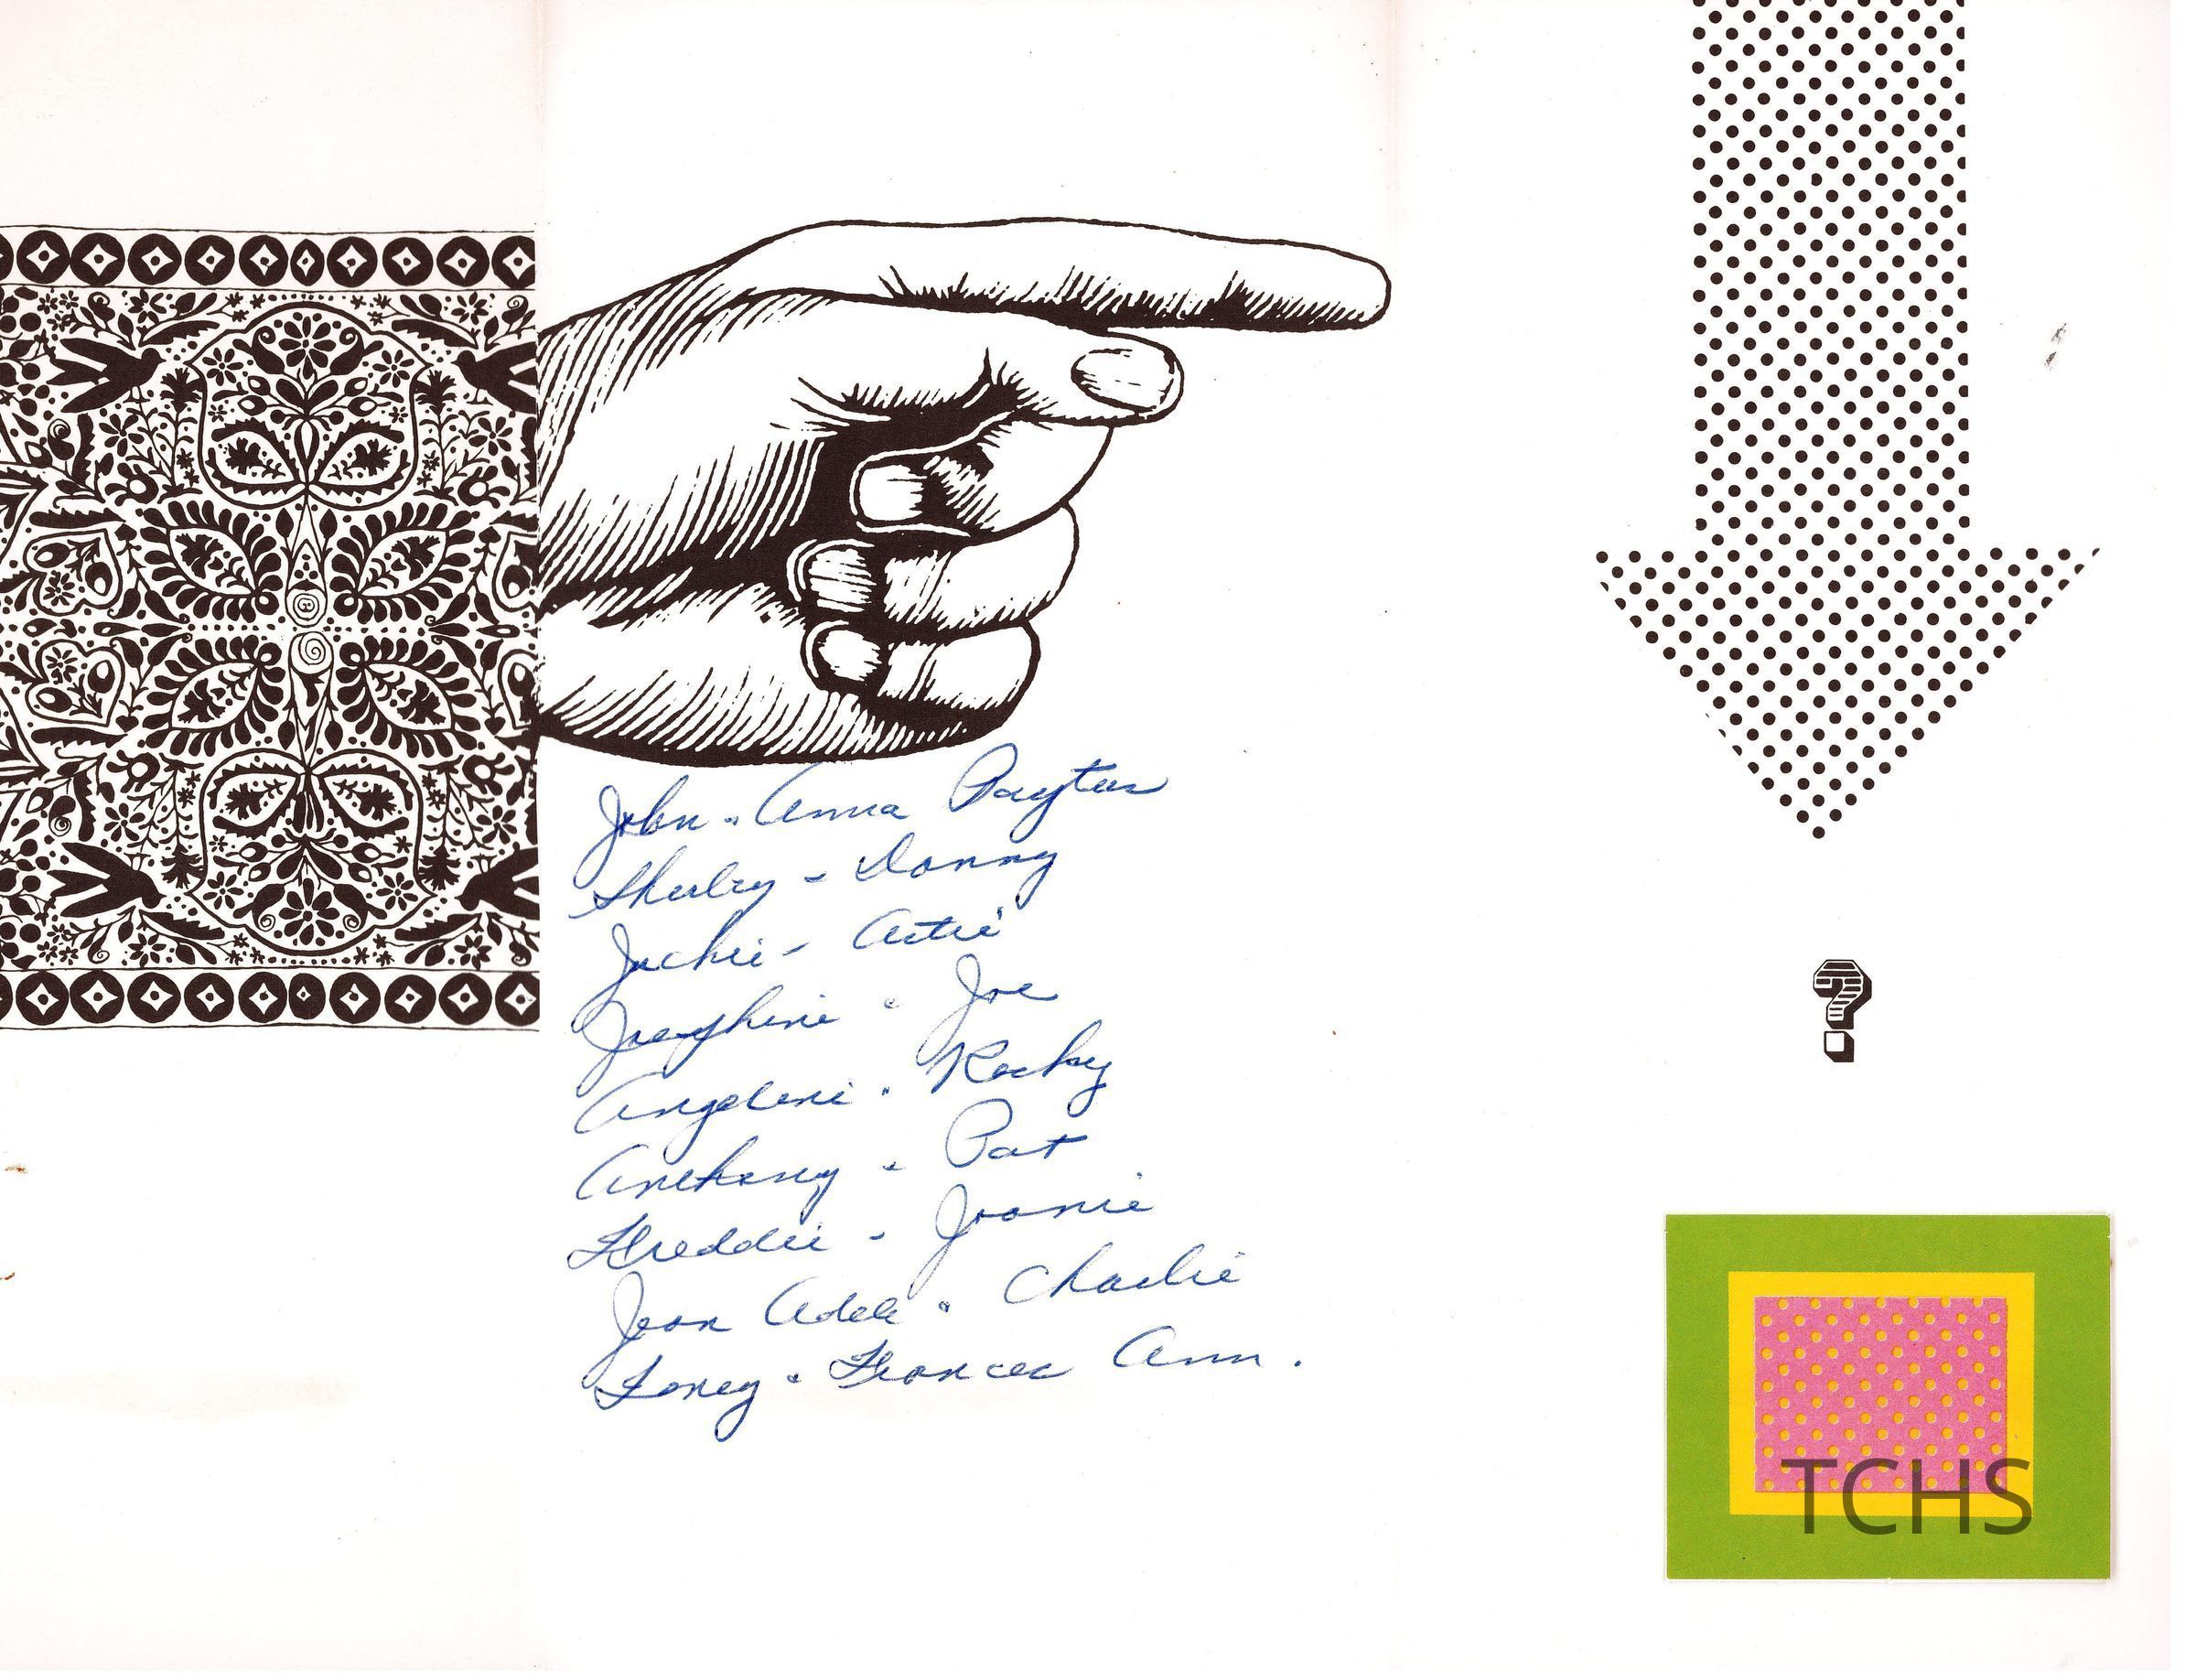 John - Anna Paytas
Shirley - Danny
Jackie - Artie
Josephine - Joe
Angeline - Rocky
Anthony - Pat
Freddie - Joanie
Jean Adele - Charlie
Toney - Frances Ann.
?
TCHS